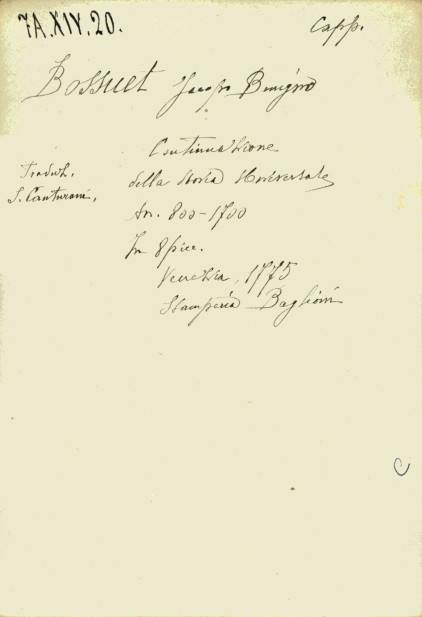 7A.XIV.20.
Capp.
Bossuet Jacopo Benigno
Continuazione
della storia Universale
Tradutt.
S. Canturani,
An. 800-1700
In 8 picc.
Venezia, 1775
Stamperia Baglioni
C